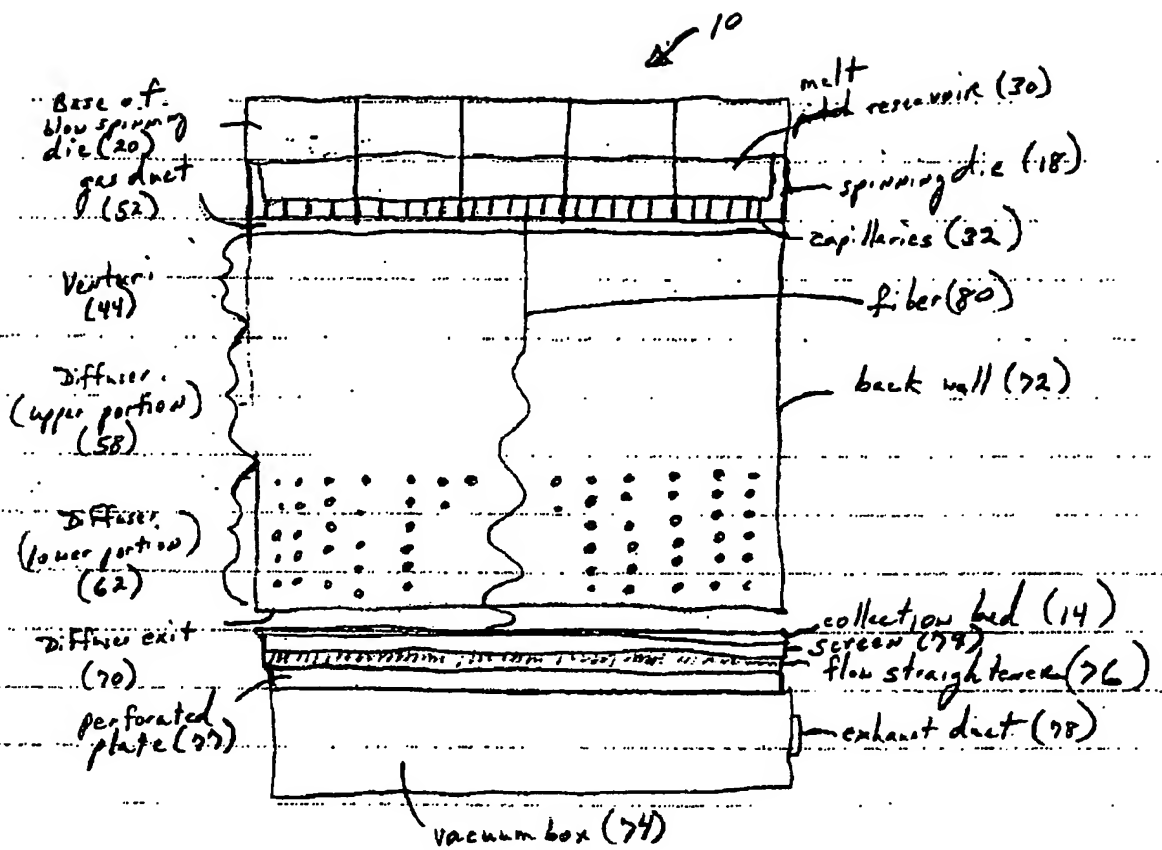 10
Base of
blow spinning
die (20)
gas duct
(52)
Venturi
(44)
Diffuser
(upper portion)
(58)
Diffuser
(lower portion)
(62)
Diffuser exit
(70)
perforated
plate (77)
melt
reservoir (30)
spinning die (18)
capillaries (32)
fiber (80)
back wall (72)
collection bed (14)
screen (79)
flow straightener (76)
exhaust duct (78)
vacuum box (74)